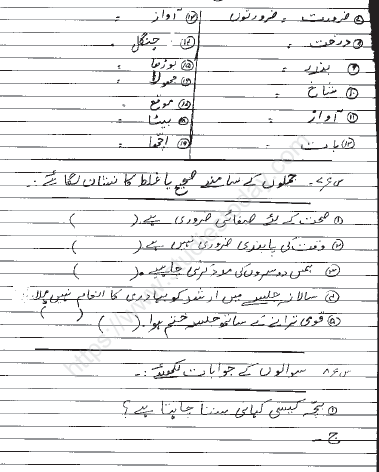 ⑧ ضرورت = ضرورتوں ⑭ آواز =
⑨ درخت = جنگل =
⑨ بندر = بوڑھا =
⑩ شاخ =
موقع =
⑪ آواز = بیٹا =
⑬ بات = اچھا =
س۷۔ جملوں کے سامنے صحیح یا غلط کا نشان لگائیے :۔
① صحت کے لئے صفائی ضروری ہے۔ ( )
② وقت کی پابندی ضروری نہیں ہے۔ ( )
③ ہمیں دوسروں کی مدد کرنی چاہیے۔ ( )
④ سالانہ جلسے میں ارشد کو بہادری کا انعام نہیں ملا۔ ( )
⑤ قومی ترانے کے ساتھ جلسہ ختم ہوا۔ ( )
س۸۔ سوالوں کے جوابات لکھئے :۔
① بچّہ کیسی کہانی سننا چاہتا ہے؟
ج ۔